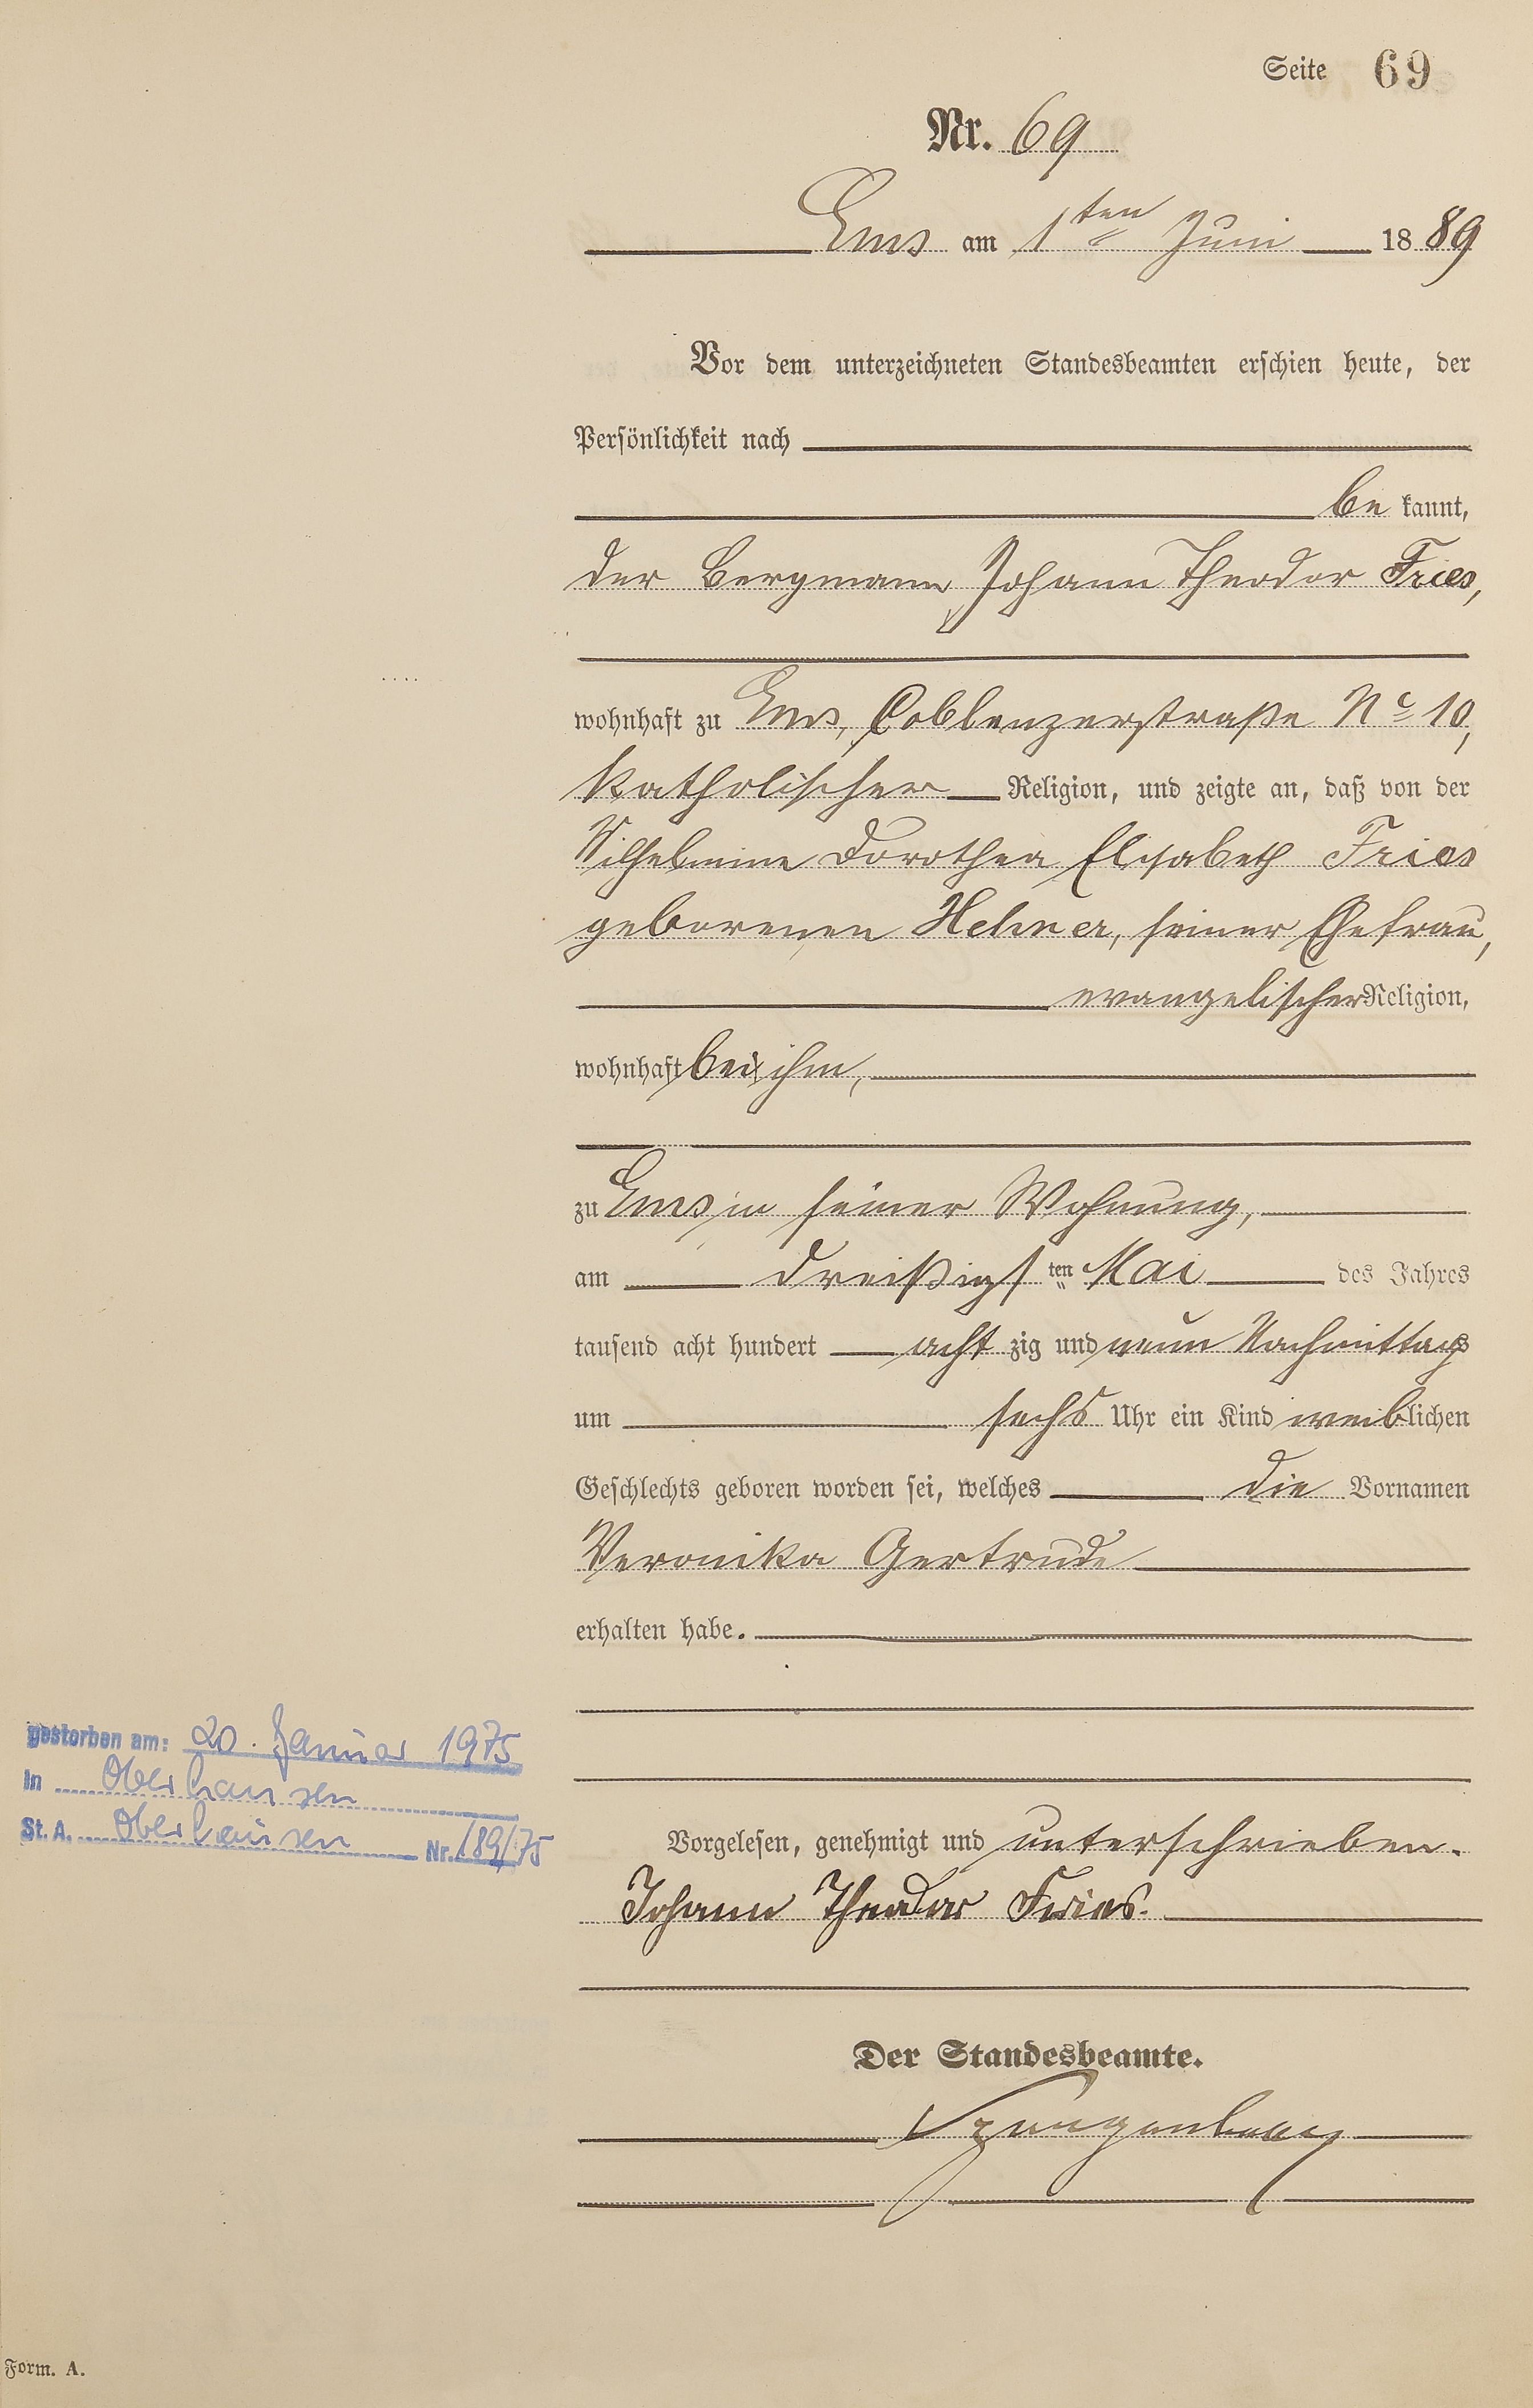 Seite 69
Nr. 69
Ems am 1ten Juni 1889
Vor dem unterzeichneten Standesbeamten erschien heute, der
Persönlichkeit nach
be kannt,
der Bergmann Johann Theodor Fries,
wohnhaft zu Ems, Coblenzerstraße No 10,
katholischer Religion, und zeigte an, daß von der
Wilhelmine Dorothea Elisabeth Fries
geborenen Hehner, seiner Ehefrau,
evangelischer Religion,
wohnhaft bei ihm,
zu Ems in seiner Wohnung,
am dreißigsten Mai des Jahres
tausend acht hundert acht zig und neun Nachmittags
um sechs Uhr ein Kind weiblichen
Geschlechts geboren worden sei, welches die Vornamen
Veronika Gertrude
erhalten habe.
gestorben am: 20. Januar 1975
in Oberhausen
St. A. Oberhausen Nr. 189/75
Vorgelesen, genehmigt und unterschrieben.
Johann Theodor Fries.
Der Standesbeamte.
Form. A.